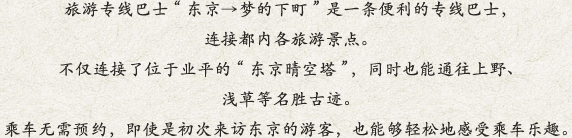 旅游专线巴士“东京→梦的下町”是一条便利的专线巴士，
连接都内各旅游景点。
不仅连接了位于业平的“东京晴空塔”，同时也能通往上野、
浅草等名胜古迹。
乘车无需预约，即使是初次来访东京的游客，也能够轻松地感受乘车乐趣。